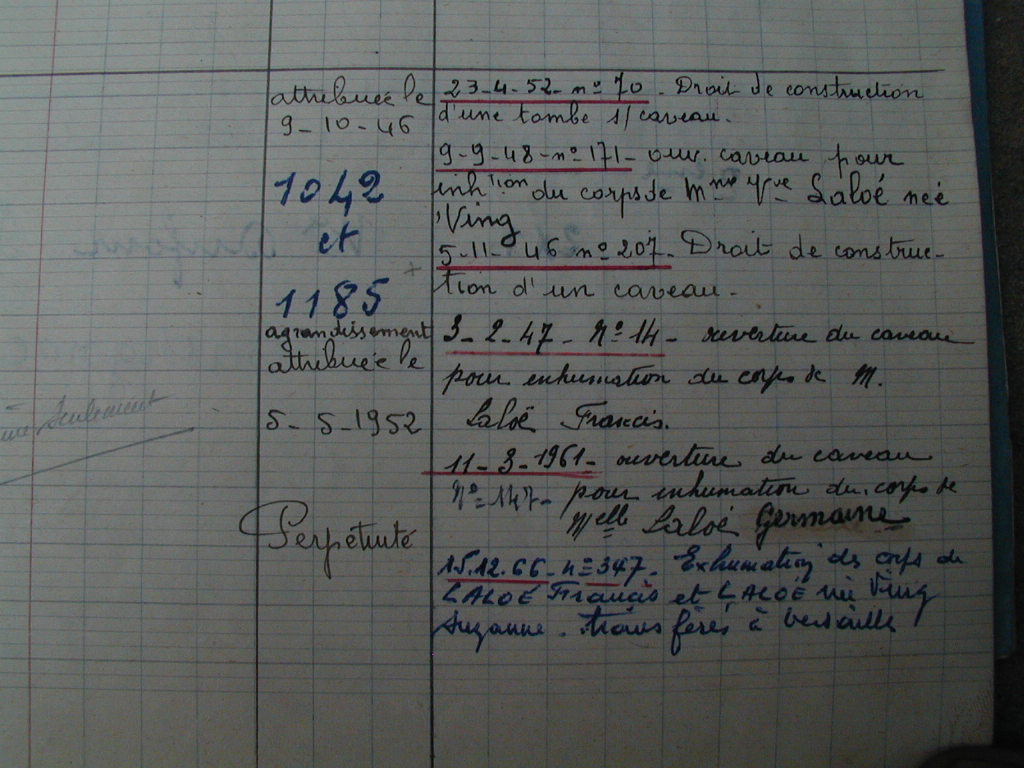 attribuée le
9-10-46
1042
et
1185
agrandissement
attribuée le
5-5-1952
Perpétuité
seulement
23-4-52-nº70. Droit de construction
d'une tombe s/caveau.
9-9-48-nº171- ouv. caveau pour
inhtion du corps de Mme Vve Laloé neé
Ving
5-11-46 nº207. Droit de construc-
tion d'un caveau.
3-2-47- Nº14- ouverture du caveau
pour inhumation du corps de M.
Laloë Francis.
11-3-1961- ouverture du caveau
Nº=147- pour inhumation du corps de
Melle Laloé Germaine
15.12.66-n=347. Exhumation des corps de
LALOÉ Francis et LALOÉ née Ving
Suzanne. transférés à Versailles